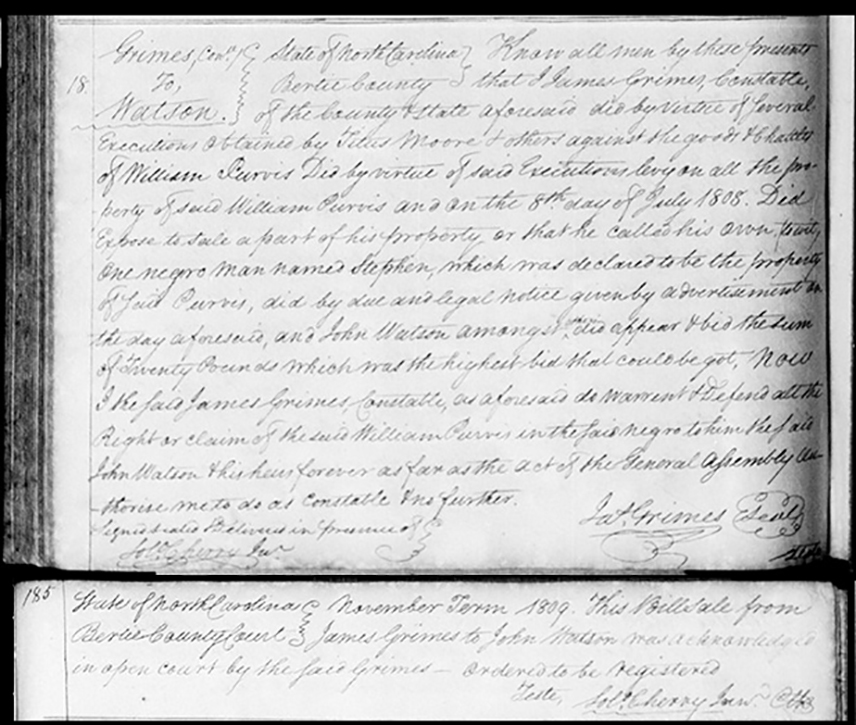 Grimes, Con.ble State of North Carolina Know all men by these presents
18 To, Bertie County that I James Grimes, Constable,
Watson. of the County & State aforesaid did by virtue of Several
Executions obtained by Titus Moore & others against the goods & Chattles
of William Purvis Did by virtue of said Executions levy on all the pro-
perty of said William Purvis and on the 8th day of July 1808. Did
Expose to sale a part of his property, or that he called his own, towit,
One negro man named Stephen, which was declared to be the property
of Said Purvis, did by due and legal notice given by advertisement on
the day aforesaid, and John Watson amongst others did appear & bid the sum
of Twenty Pounds which was the highest bid that could be got, Now
I the said James Grimes, Constable, as aforesaid do warrent & Defend all the
Right or claim of the said William Purvis in the said negro to him the said
John Watson & his heirs forever as far as the act of the General Assembly Au-
thorise me to do as Constable & no further.
Signed sealed & Delivered in presence of Jas. Grimes Seal
Sol. Cherry Junr
185 State of North Carolina November Term 1809. This Bill Sale from
Bertie County Court James Grimes to John Watson was acknowledged
in open court by the said Grimes — ordered to be registered
Teste, Sol. Cherry Junr. Clk